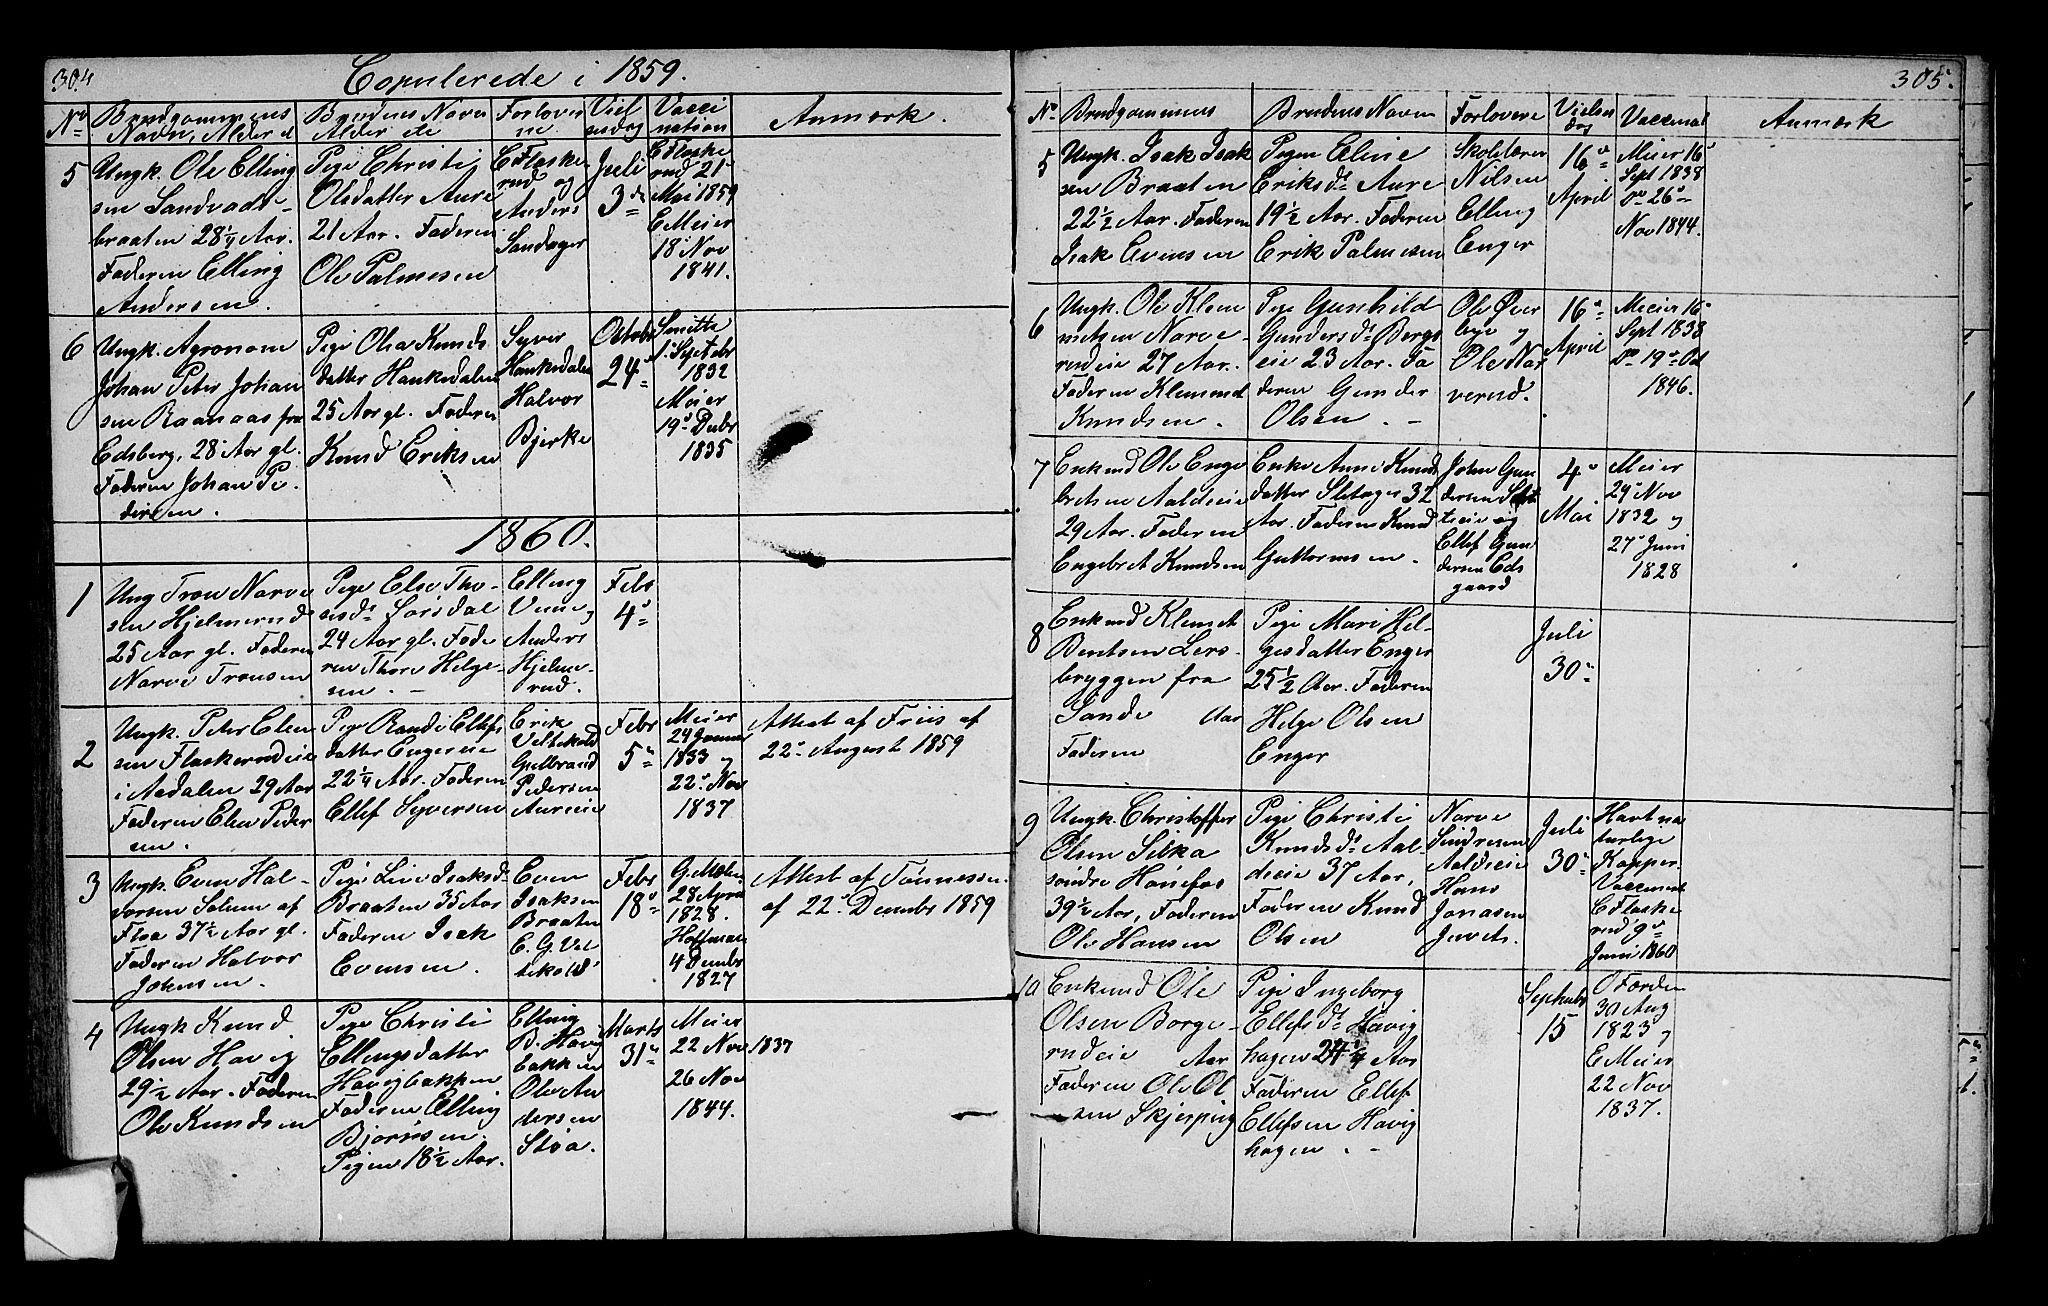 304
Copulerede i 1859.
No
Brudgommens Navn, Alder et
Brudens Navn Alder etc
Forlovere
Vielsesdag
Vaccination
Anmærk.
5
Ungk. Ole Elling
sen Sandvads-
braaten 28 1/4 Aar.
Faderen Elling
Andersen.
Pige Christi
Olsdatter Aure
21 Aar. Faderen
Ole Palmesen
E Flaske
rud og
Anders
Sandager
Juli
3de
E Flaske
rud 21
Mai 1859
E Meier
18 Nov
1841.
6
Ungk. Agronom
Johan Peter Johan
sen Raanaas fra
Edsberg, 28 Aar gl.
Faderen Johan Pe
dersen.
Pige Olea Knuds
datter Hauksdalen
25 Aar gl. Faderen
Knud Eriksen
Syver
Hauksdalen
Halvor
Bjerke
Octobr
24
Smitte
1 Septebr
1832
Meier
19 Decbr
1835
1860.
1
Ung Tron Narve
sen Hjelmerud
25 Aar gl. Faderen
Narve Tronsen
Pige Else Tho-
resdr Sørsdal
24 Aar gl. Fade
ren Thore Helge
sen. -
Elling
Veme
Anders
Hjelme-
rud.
Febr
4
2
Ungk. Peter Elen
sen Flaskerudeie
i Aadalen 29 Aar
Faderen Elen Peder
sen.
Pige Randi Ellefs
datter Engereie
22 1/4 Aar. Faderen
Ellef Syversen
Erik
Veltekold
Gulbrand
Pedersen
Aureeie
Febr
5
Meier
24 Januar
1833 og
22 Nov
1837
Attest af Friis af
22 August 1859
3
Ungk. Even Hal-
vorsen Solum af
Floa 37 1/2 Aar gl.
Faderen Halvor
Johnsen.
Pige Live Isaksdr
Braaten 35 Aar
Faderen Isak
Evensen.
Even
Isaksen
Braaten
E. G. Vel
tekold
Febr
18
28 April
1828.
Hoffman
4 Decmbr
1827
Attest af Tønnessen
af 22 Decmbr 1859
4
Ungk Knud
Olsen Havig
29 1/2 Aar. Faderen
Ole Knudsen
Pige Christi
Ellingsdatter
Havigbakken
Faderen Elling
Bjørnsen.
Pigen 18 1/2 Aar.
Elling
B. Havig
bakken
Ole An
dersen
Stoa.
Marts
31
Meier
22 Nov 1837
26 Nov
1844.
305.
No
Brudgommens
Brudens Navn
Forlovere
Vielses dag
Vaccinat
Anmærk
5
Ungk. Isak Isak
sen Braaten
22 1/2 Aar. Faderen
Isak Evensen
Pigen Eline
Eriksdr Aure
19 1/2 Aar. Faderen
Erik Palmesen
Skolelærer
Nilsen
Elling
Enger
16
April
Meier 16
Sept 1838
Do 26
Nov 1844.
6
Ungk. Ole Klem
metsen Narve-
rudeie 27 Aar.
Faderen Klemmet
Knudsen.
Pige Gunhild
Gundersdr Bergs
eie 23 Aar. Fa
deren Gunder
Olsen. -
Ole Øver
bye og
Ole Nar
verud.
16
April
Meier 16
Sept 1838
Do 19 Oct
1846.
7
Enkmd Ole Enge
bretsen Aaldieie
29 Aar. Faderen
Engebret Knudsen
Enke Anne Knuds
datter Sletager 32
Aar. Faderen Knud
Guttormsen.
John Gun
dersen
teeie og
Ellef Gun
dersen Eds
gaard
4
Mai
Meier
24 Nov
1832 og
27 Juni
1828
8
Enkmd Klemet
Bentsen Lers-
bryggen fra
Sande Aar
Faderen
Pige Mari Hel-
gesdatter Enger
25 1/2 Aar. Faderen
Helge Olsen
Enger
Juli
30
9
Ungk. Christoffer
Olsen Silka
søndre Hønefos
39 1/2 Aar, Faderen
Ole Hansen
Pige Christi
Knudsdr Aal-
dieie 37 Aar,
Faderen Knud
Olsen
Narve
Sindresen
Aaldieie
Hans
Jonasen
Juveth.
Juli
30
Havt na
turlige
Kopper.
Vaccinat
E Flaske
rud 9
Juni 1860
10
Enkemd Ole
Olsen Borge-
rudeie Aar
Faderen Ole Ol
sen Skjerping
Pige Ingeborg
Ellefsdr Havig
hagen 24 1/4 Aar
Faderen Ellef
Ellefsen Havig
hagen. -
Septmbr
15
O Færden
30 Aug
1823 og
E Meier
22 Nov
1837.